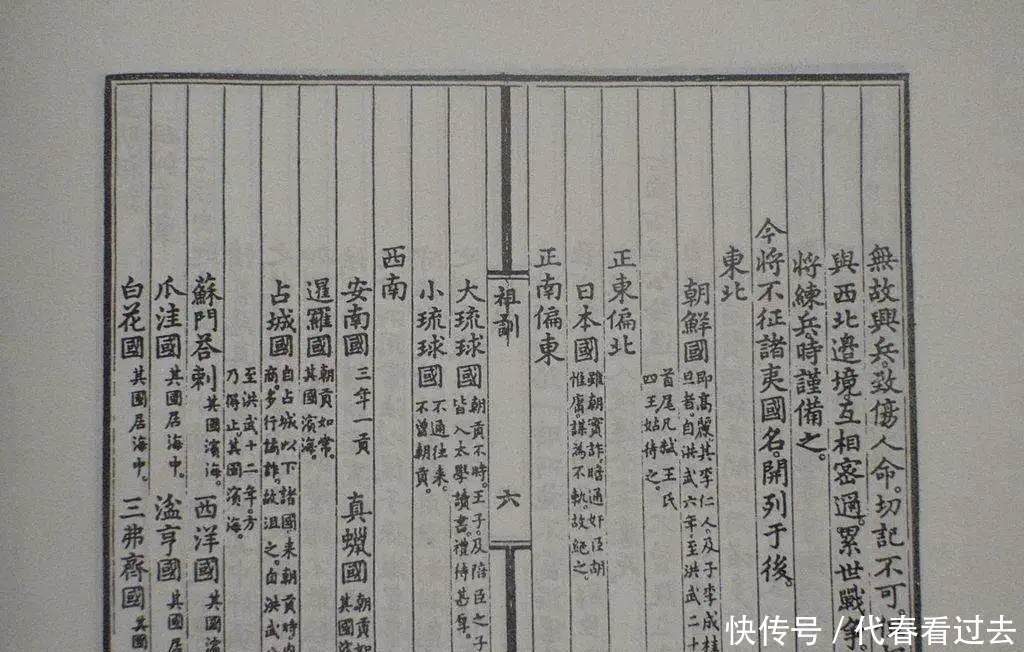 無故興兵。致傷人命。切記不可。
與西北邊境。互相密邇。累世戰爭。
將練兵。時謹備之。
今將不征諸夷國名。開列于後。
東北
朝鮮國
即高麗。其李仁人。及子李成桂
旦者。自洪武六年。至洪武二十
首尾凡弒王氏
四王。姑待之。
正東偏北
日本國
雖朝實詐。暗通奸臣胡
惟庸。謀為不軌。故絕之。
正南偏東
祖訓
六
大琉球國
朝貢不時。王子。及陪臣之子。
皆入太學讀書。禮待甚厚。
小琉球國
不通往來。
不曾朝貢。
西南
安南國 三年一貢
真蠟國
朝貢如
其國濱
暹羅國
朝貢如常。
其國濱海。
占城國
自占城以下諸國。來朝貢時。內
商。多行譎詐。故沮之。自洪武八
至洪武十二年。方
乃得止。其國濱海。
蘇門荅剌 其國濱海。
西洋國 其國濱
爪洼國 其國居海中。
湓亨國 其國居
白花國 其國居海中。
三弗齊國 其國
快传号 / 代春看过去